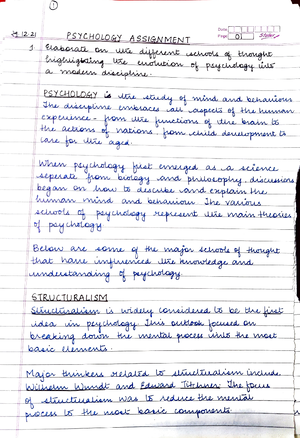 1
Date
19.12.21 PSYCHOLOGY ASSIGNMENT Page 01
1. Elaborate on the different schools of thought
highlighting the evolution of psychology into
a modern discipline.
PSYCHOLOGY is the study of mind and behaviour.
The discipline embraces all aspects of the human
experience - from the functions of the brain to
the actions of nations, from child development to
care for the aged.
When psychology first emerged as a science
seperate from biology and philosophy, discussions
began on how to describe and explain the
human mind and behaviour. The various
schools of psychology represent the main theories
of psychology.
Below are some of the major schools of thought
that have influenced the knowledge and
understanding of psychology.
STRUCTURALISM
Structuralism is widely considered to be the first
idea in psychology. This outlook focused on
breaking down the mental process into the most
basic elements.
Major thinkers related to structuralism include
Wilhelm Wundt and Edward Titchner. The focus
of structuralism was to reduce the mental
process to the most basic components.